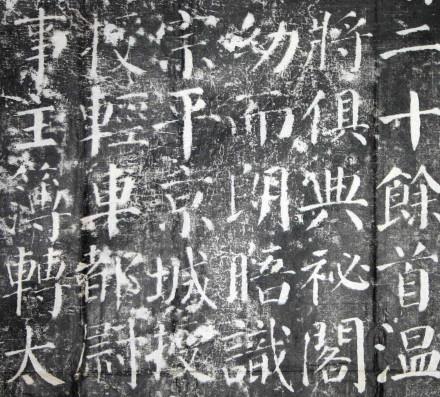 二十餘首溫
將俱典祕閣
幼而朗晤識
宗平京城授
授輕車都尉
事主簿轉太